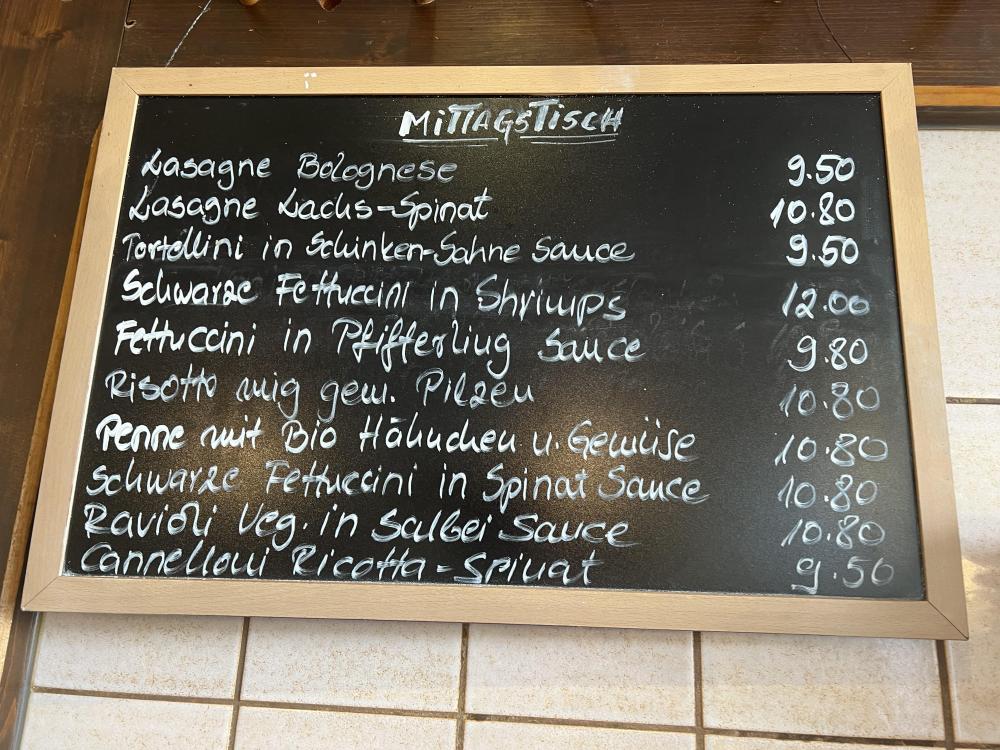 MiTTAGSTiSCH
Lasagne Bolognese 9.50
Lasagne Lachs-Spinat 10.80
Tortellini in Schinken-Sahne Sauce 9.50
Schwarze Fettuccini in Shrimps 12.00
Fettuccini in Pfifferling Sauce 9.80
Risotto mig gem. Pilzen 10.80
Penne mit Bio Hähnchen u. Gemüise 10.80
Schwarze Fettuccini in Spinat Sauce 10.80
Ravioli Veg. in Salbei Sauce 10.80
Cannelloni Ricotta-Spinat 9.50